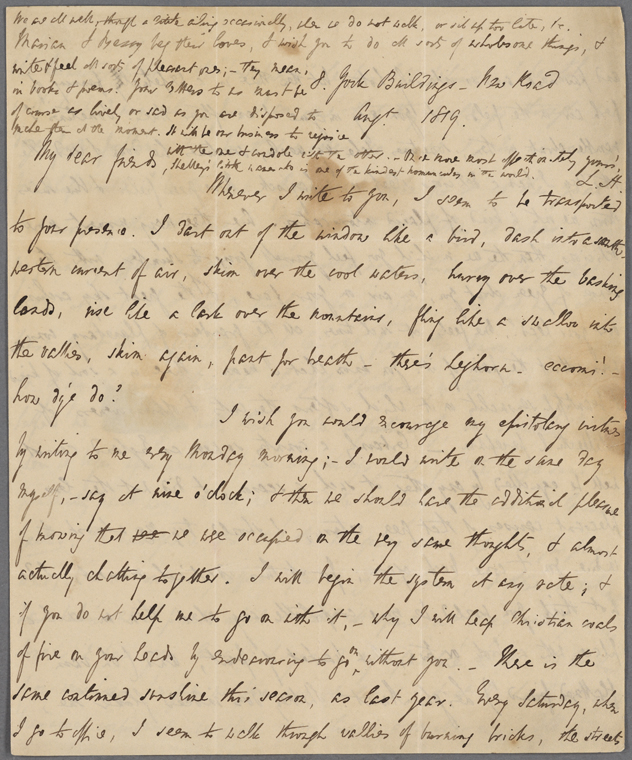 We are all well, though a little ailing occasionally, when we do not walk, or sit up too late, &c.
Marian & Bessy beg their loves, & wish you to do all sorts of wholesome things, &
write & feel all sorts of pleasant ones; – they mean,
in books & poems. Your letters to us must be
of course as lively or sad as you are disposed to
make them at the moment. It will be our business to rejoice
with the one & condole with the other. – Once more most affectionately yours,
Shelley's little is one of the kindest homunculus in the world. L. H.
8. York Buildings – New Road
Augt. 1819.
My dear friends,
Whenever I write to you, I seem to be transported
to your presence. I dart out of the window like a bird, dash into a south-
western current of air, skim over the cool waters, hurry over the basking
lands, rise like a lark over the mountains, fling like a swallow into
the vallies, skim again, pant for breath – there's Leghorn – eccomi! –
how d'ye do?
I wish you would encourage my epistolary virtues
by writing to me every Monday morning; – I would write on the same day
myself, – say at nine o'clock; & then we should have the additional pleasure
of knowing that we were occupied on the very same thoughts, & almost
actually chatting together. I will begin the system at any rate; &
if you do not help me to go on with it, – why I will heap Christian coals
of fire on your heads by endeavouring to go on without you. – There is the
same continued sunshine this season, as last year. Every Saturday, when
I go to office, I seem to walk through vallies of burning bricks, the streets